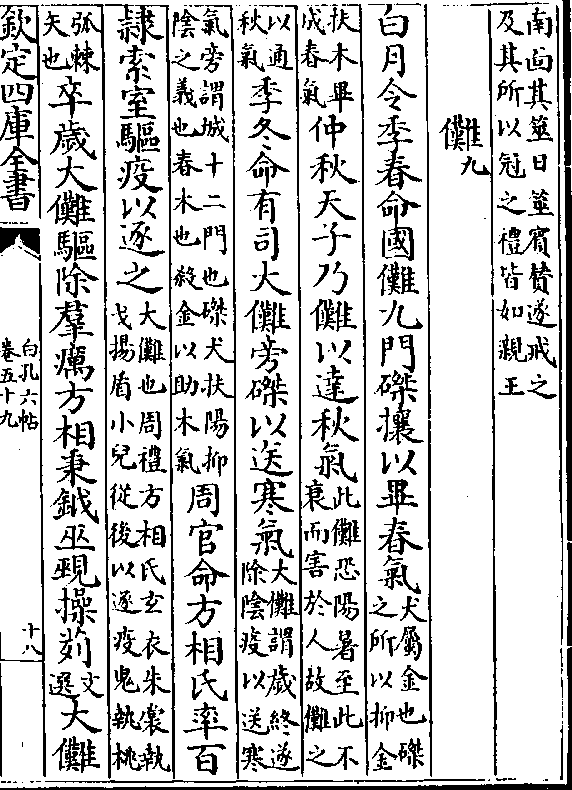 南面其筮日筮賓贊遂戒之
及其所以冠之禮皆如親王
儺九
白月令季春命國儺九門磔攘以畢春氣
犬屬金也磔
之所以抑金
扶木畢
成春氣
仲秋天子乃儺以達秋氣
此儺恐陽暑至此不
衰而害於人故儺之
以通
秋氣
季冬命有司大儺旁磔以送寒氣
大儺謂歲終遂
除陰疫以送寒
氣旁謂城十二門也磔犬扶陽抑
陰之義也春木也殺金以助木氣
周官命方相氏率百
隸索室驅疫以逐之
大儺也周禮方相氏玄衣朱裳執
戈揚盾小兒從後以逐疫鬼執桃
弧棘
矢也
卒歲大儺驅除羣癘方相秉鉞巫覡操茢
文
選
大儺
欽定四庫全書
白孔六帖
卷五十九
十八